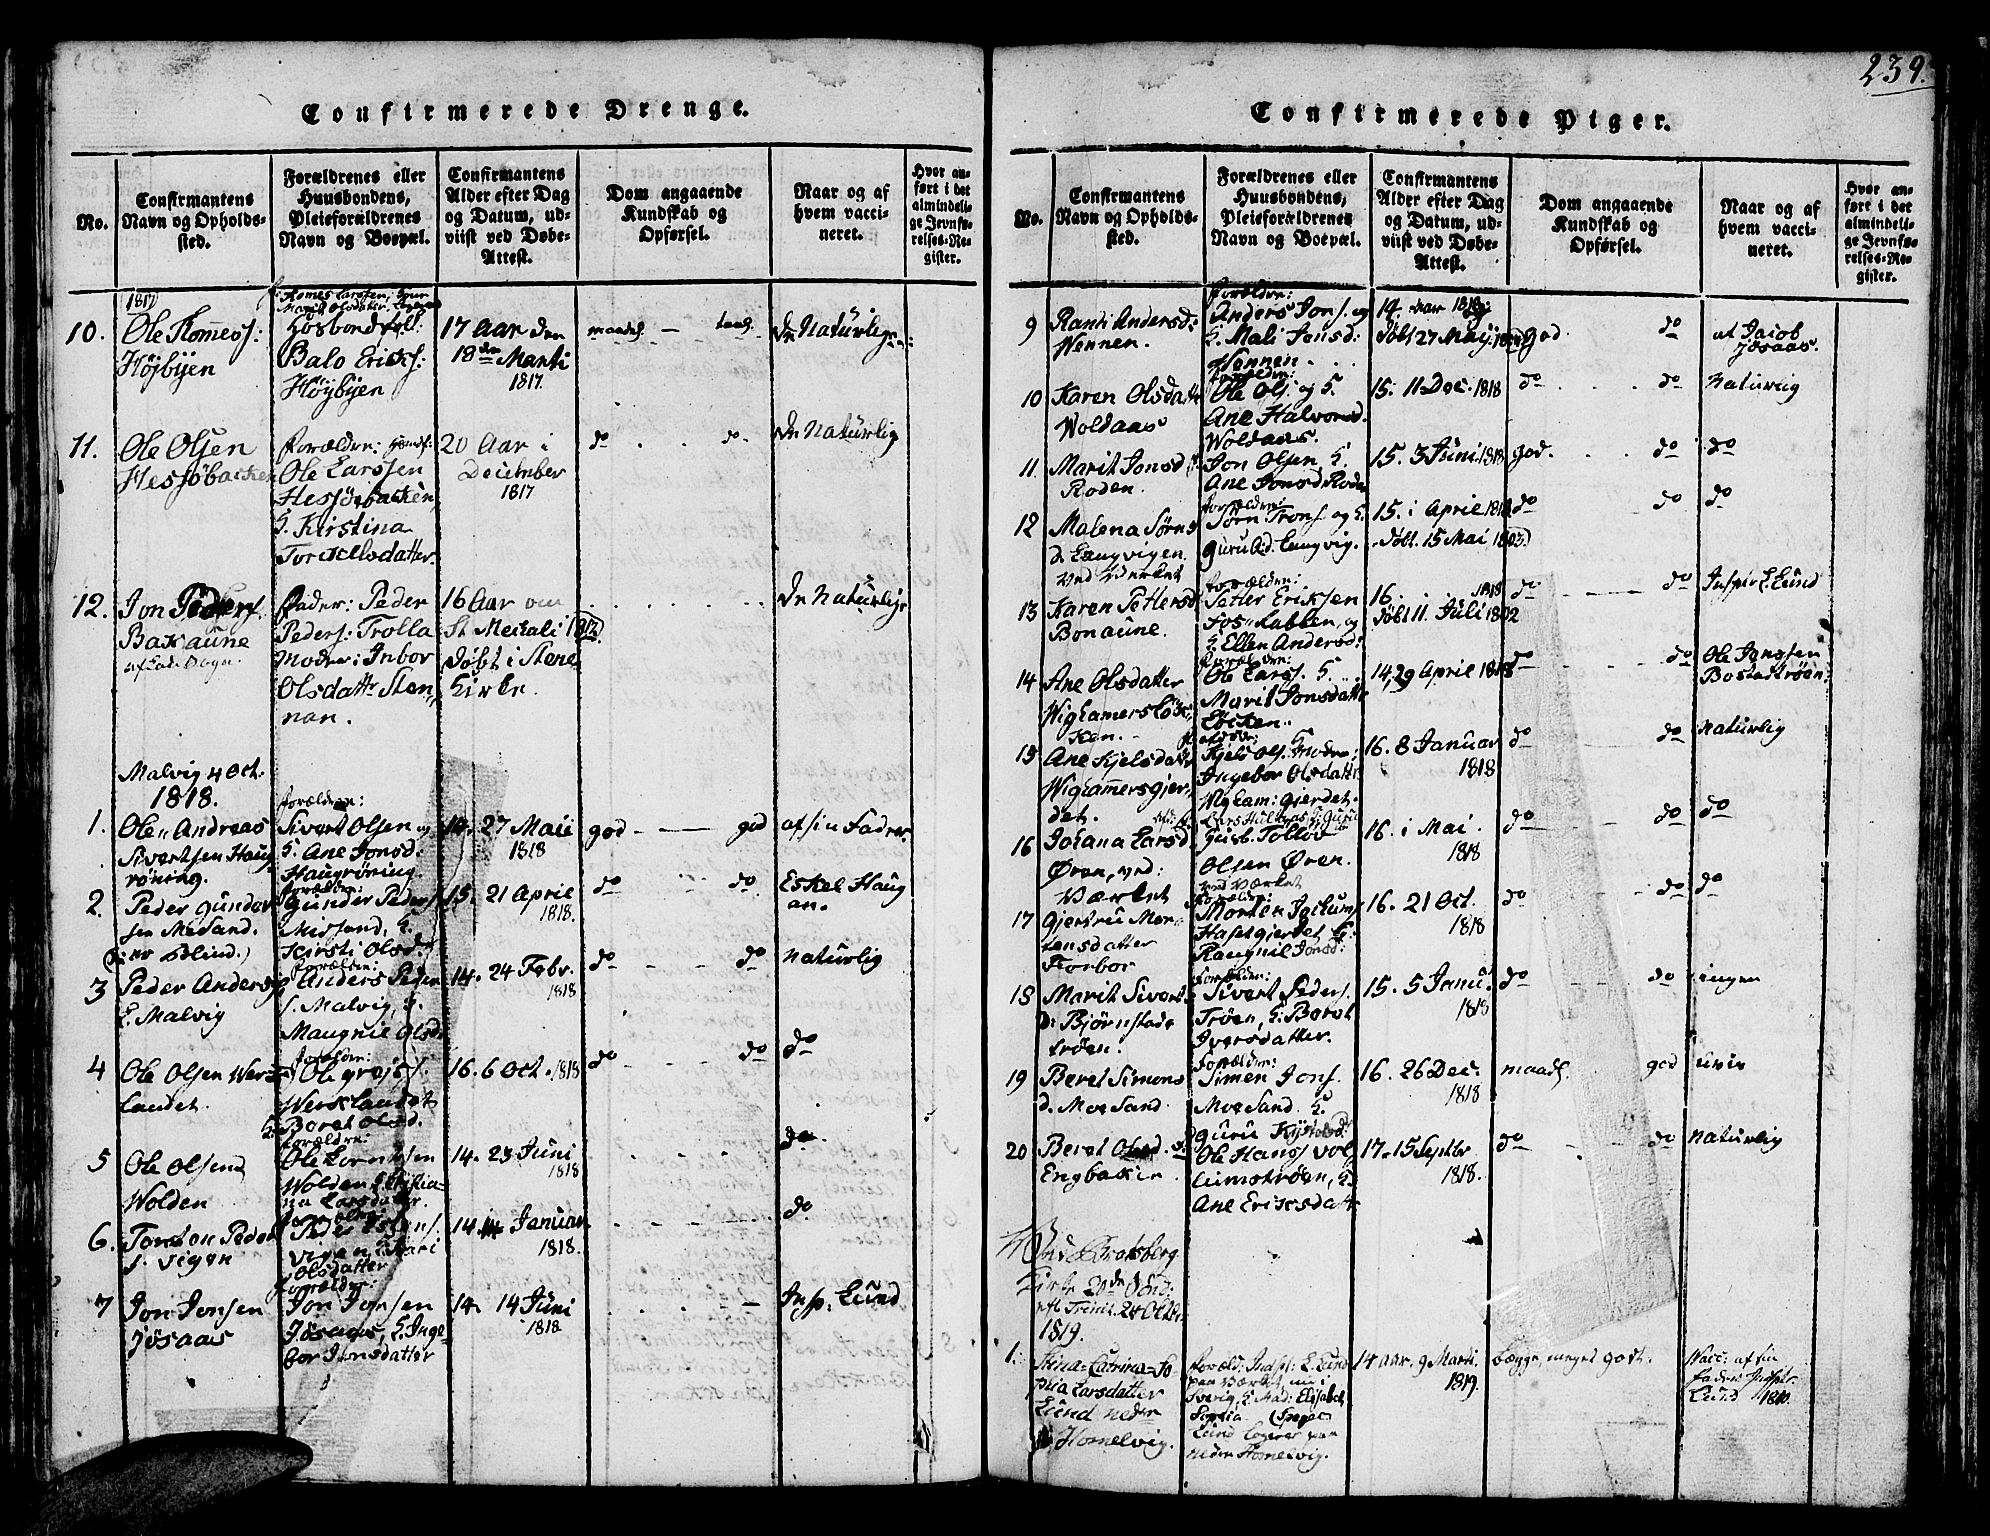 239.
Confirmerede Drenge.
No.
Confirmantens
Navn og Opholds-
sted.
Forældrenes eller
Huusbondens,
Pleieforældrenes
Navn og Boepæl.
Confirmantens
Alder efter Dag
og Datum, ud-
viist ved Døbe-
Attest.
Dom angaaende
Kundskab og
Opførsel.
Naar og af
hvem vacci-
neret.
Hvor an-
ført i det
almindeli-
ge Jevnfø-
relses-Re-
gister.
1817
10.
Ole Tomesʃ:
Højbyen
Tomes Larssen,
Marit Olsdatter
Hosbondfol:
Balo Ericksʃ:
Höybyen
17 Aar den
18de Marti
1817.
maadel. — taal.
De Naturlige:
11.
Ole Olsen
Hesjöbacken
Forældre:
Ole Larssen
Hesjöebacken,
H. Kirstina
Torkelsdatter.
20 Aar i
December
1817
do . . do.
De Naturlig
12.
Jon Pedersʃ.
Bakaune
Fader: Peder
Pedersʃ: Trolla
Moder: Inbor
Olsdattr Sten
nan.
16 Aar om
St Mechali 1817
döbt i Stene
Kirke.
De Naturlige
Malvig 4 Oct.
1818.
1.
Ole Andreas
Sivertsen Haug
röning.
Forældre:
Sivert Olsen og
H. Ane Jonsd:
Haugröning.
14. 27 Maii
1818
god — god
af sin Fader
2.
Peder Gunder
sen Mesand.
(er blind.)
Forældre:
Gunder Pedersʃ
Midsand, H.
Kirsti Olsdr
15. 21 April
1818.
do do
Eskel Haug
an.
3
Peder Andersʃ
L. Malvig
Forældre:
Anders Peder
s. Malvig, H.
Maugnil Olsdr
14. 24 Febr.
1818
do do
Naturlig
4
Ole Olsen Werk
landet.
Forældre:
Ole Grøjsʃ:
Werklandet
H. Beret Olsd.
16. 6 Oct. 1818
do do
do
5
Ole Olsen
Wolden
Forældre:
Ole Lorntsen
Wolden H. Kristia-
na Larsdatter.
14. 23 Juni
1818
do
6.
Torsten Peder
s. Vigen
Forældre:
Peder
Vigen H. Kari
Olsdatter
14. 14 Januar
1818.
do
7
Jon Jonsen
Jösaas
Forældre:
Jon Jonsen
Jösaas, H. Inge-
bor Jonsdatter
14. 14 Juni
1818
Insp. Lund
Confirmerede Piger.
No.
Confirmantens
Navn og Opholds-
sted.
Forældrenes eller
Huusbondens,
Pleieforældrenes
Navn og Boepæl.
Confirmantens
Alder efter Dag
og Datum, ud-
viist ved Døbe-
Attest.
Dom angaaende
Kundskab og
Opførsel.
Naar og af
hvem vacci-
neret.
Hvor an-
ført i det
almindeli-
ge Jevnfø-
relses-Re-
gister.
9
Ranti Andersd:
Wennen.
Forældre:
Anders Jonsʃ og
H. Mali Jonsd:
Wennen
14.
Döbt 27 May
god. do
af Jacob
Jösaas.
10
Karen Olsdattr
Woldaas
Forældre:
Ole Olsʃ. og H.
Ane Halvorsd.
Woldaas.
15. 11 Dec. 1818
do . . do
Naturlig
11
Marit Jonsd
Roden.
Jon Olsen, H.
Ane Jonsd Roden
15. 3 Juni. 1818
god. . . do
do
12
Malena Sörns
d. Langvigen
ved Værket
Forældre:
Sörn Tronsʃ og H.
Guru Langvig.
15. i April 1818
döbt. 15 Mai 1803
do do
do
13
Karen Pettersd
Bonaune.
Forældre:
Petter Eriksen
Fossrabben, og
H. Ellen Andersd:
16. 1818
döbt 11. Juli 1802
do do
Inspr L. Lund
14
Ane Olsdatter
Wighamersløk-
ken.
Forældre:
Ole Larsʃ. H.
Marit Jonsdattr
Löcken.
14, 29 April 1818
do do
Ole Jonssen
Bostadtröen
15
Ane Kjelsdattr
Wighammersgjer
det.
Kjels Olsʃ. Modr:
Ingebor Olsdattr
Wigham: gjerdet.
16. 8 Januar
1818
do do
Naturlig
16
Johana Larsd
Øren, ved:
Værket
Husb. Tollov
Olsen Øren.
ved Værket
16. i Mai
1818
do do
do
17
Gjertru Mor-
tensdatter
Korbor
Forældre:
Morten Jochumsʃ
Haselgjerdet H:
Raugnil Jonsd:
16. 21 Oct.
1818
do do
do
18
Marit Sivert
d: Björnstade
tröen.
Forældre:
Sivert Pedersʃ.
Tröen, H: Beret
Iversdatter.
15. 5 Janu.
1818
do do
ingen
19
Beret Simons
d. Moesand
Forældre:
Simen Jonsʃ.
Moesand. H.
Guru
16. 26 Dec.
1818
maadl. god
uvis
20
Beret Olsd.
Engbaken
Ole Hansʃ Vol
lumströen, H.
Ane Ericksdattr
17. 15 Septbr
1818.
do do
Naturlig
Ved Bratsberg
Kirke 20de Sönd:
eft. Trinit. 24 Octbr.
1819.
1.
Stina-Catrina-So
phia Larsdatter
Lund neder
Homelvig.
Foræld: Insp: L. Lund
paa Værket, nu i
Mad: Elisabet
Sophia
Lund logerer paa
neder Homelvig.
14 aar. 9 Marti.
1819.
begge, meget godt.
Vacc: af sin
Fader Inspr
Lund 1810.